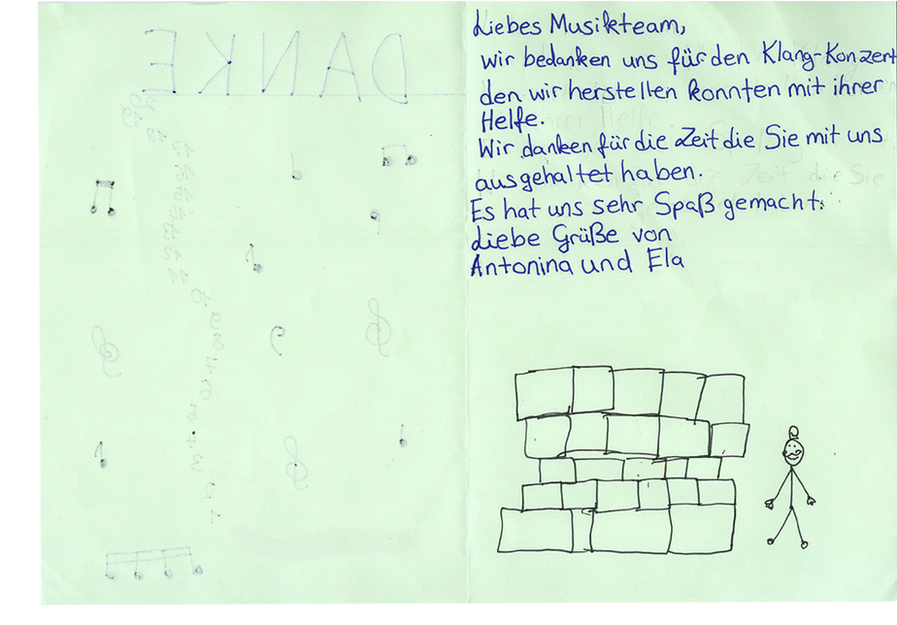 DANKE
Liebes Musikteam,
wir bedanken uns für den Klang-Konzert
den wir herstellen konnten mit ihrer
Helfe.
Wir danken für die Zeit die Sie mit uns
ausgehaltet haben.
Es hat uns sehr Spaß gemacht.
Liebe Grüße von
Antonina und Ela